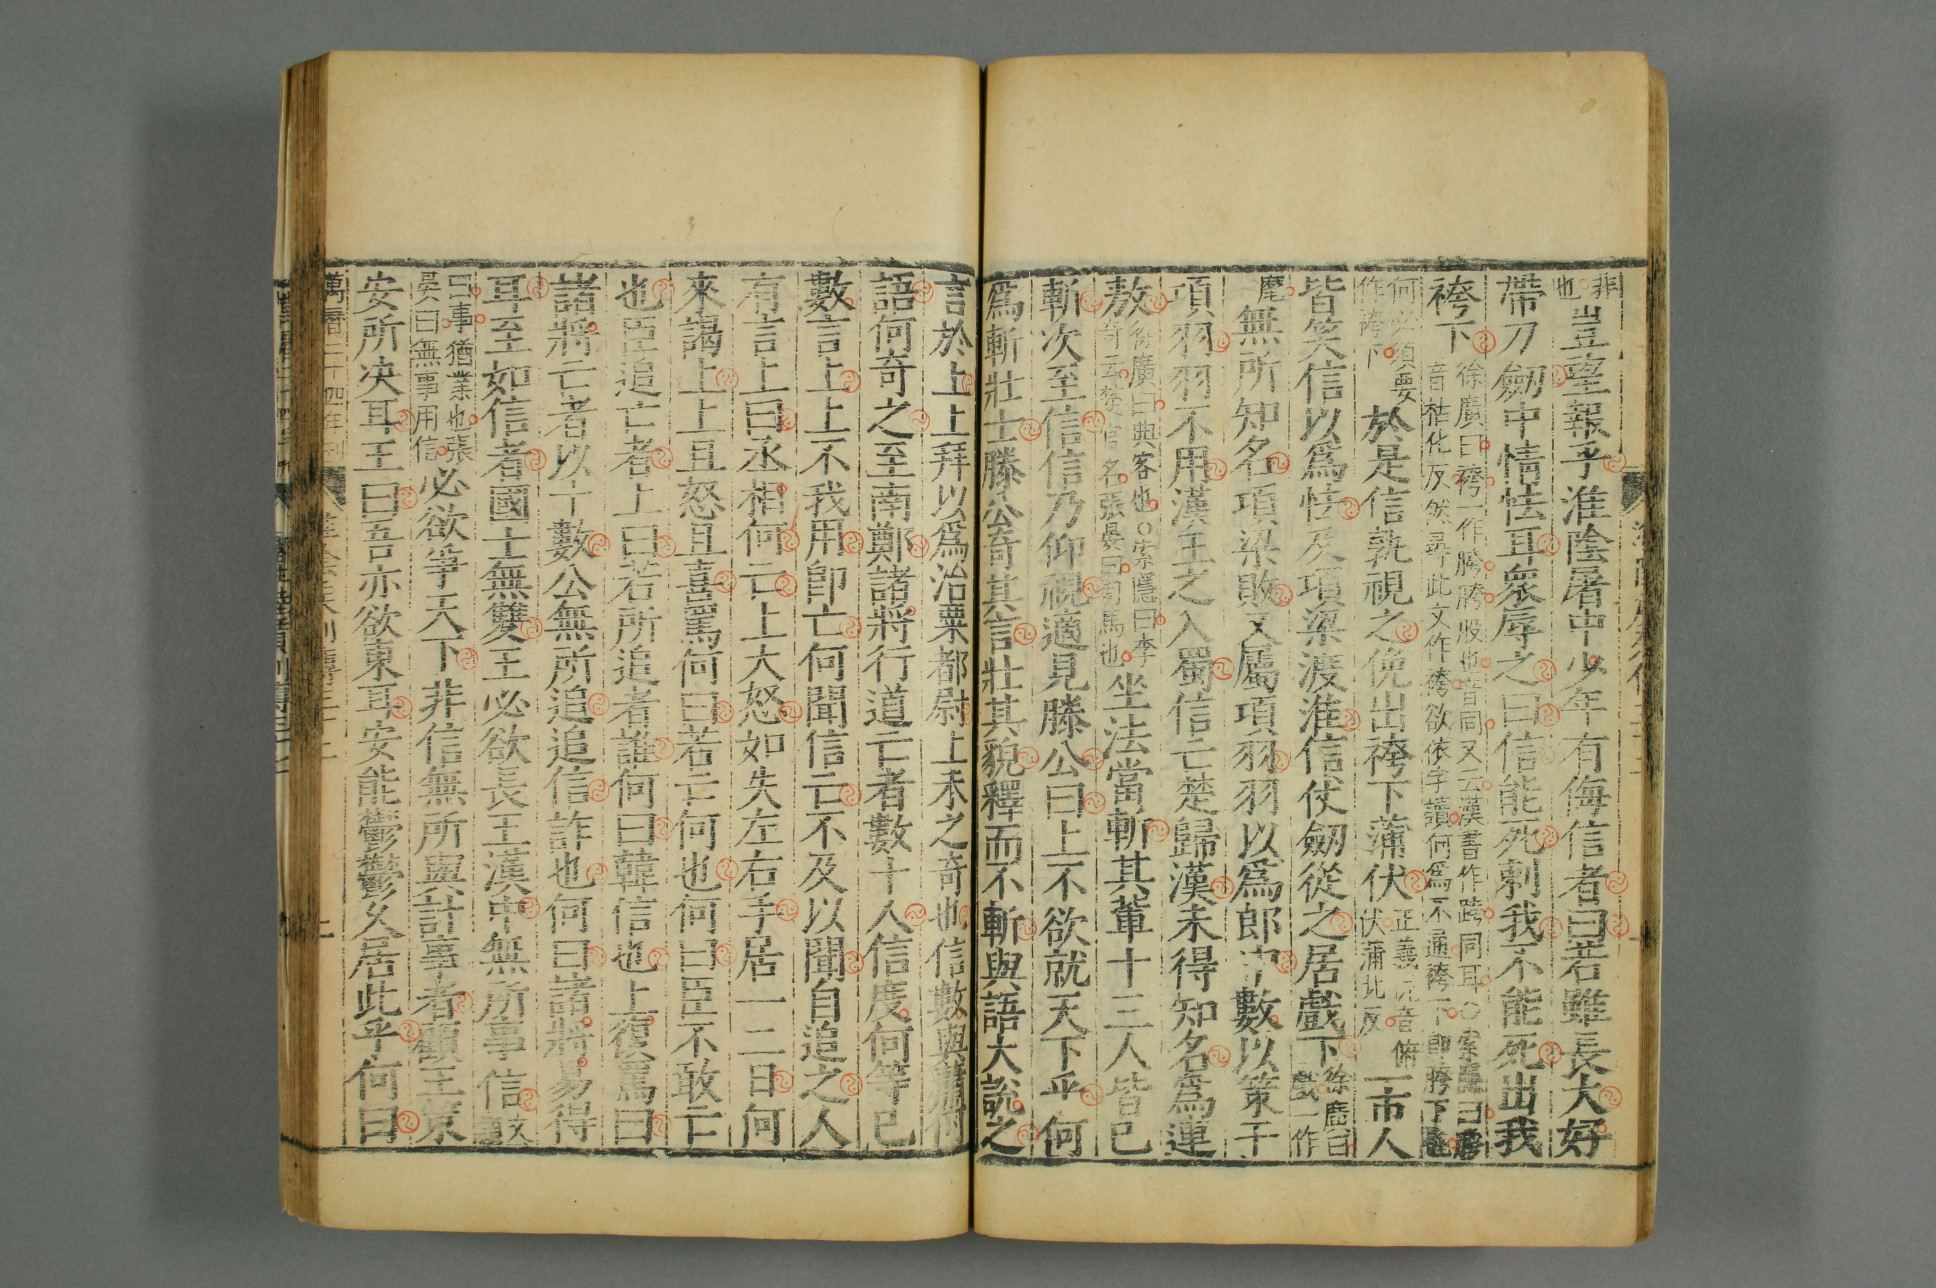 非也豈望報乎淮陰屠中少年有侮信者曰若雖長大好
帶刀劒中情怯耳衆辱之曰信能死刺我不能死出我
袴下徐廣曰袴一作胯胯股也音同又云漢書作跨同耳○索隱曰
音枯化反然尋此文作袴欲依字讀何爲不通袴下即胯下
何必須要作胯下於是信孰視之俛出袴下蒲伏正義俛音俯伏蒲北反一市人
皆笑信以爲怯及項梁渡淮信仗劒從之居戲下徐廣曰戲一作
麾無所知名項梁敗又屬項羽羽以爲郎中數以策干
項羽羽不用漢王之入蜀信亡楚歸漢未得知名爲連
敖徐廣曰典客也○索隱曰李奇云楚官名張晏曰司馬也坐法當斬其輩十三人皆已
斬次至信信乃仰視適見滕公曰上不欲就天下乎何
爲斬壯士滕公奇其言壯其貌釋而不斬與語大說之
言於上上拜以爲治粟都尉上未之奇也信數與蕭何
語何奇之至南鄭諸將行道亡者數十人信度何等已
數言上上不我用即亡何聞信亡不及以聞自追之人
有言上曰丞相何亡上大怒如失左右手居一二日何
來謁上上且怒且喜罵何曰若亡何也何曰臣不敢亡
也臣追亡者上曰若所追者誰何曰韓信也上復罵曰
諸將亡者以十數公無所追追信詐也何曰諸將易得
耳至如信者國士無雙王必欲長王漢中無所事信文
曰事猶業也張晏曰無事用信必欲爭天下非信無所與計事者顧王策
安所决耳王曰吾亦欲東耳安能鬱鬱久居此乎何曰
萬曆二十四年刊